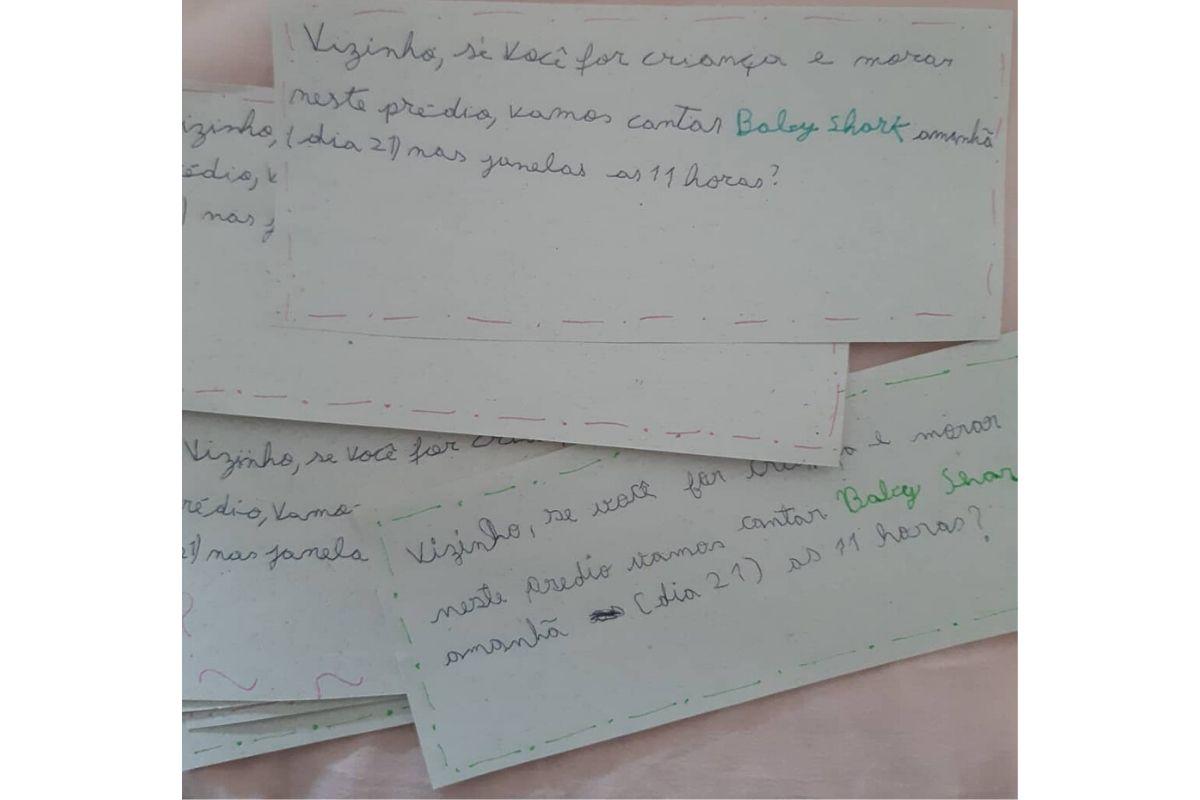 Vizinho, se você for criança e morar
neste prédio, vamos cantar Baby Shark amanhã
(dia 21) nas janelas as 11 horas?
izinho,
édio, v
) nas j
Vizinho, se você for
rédio, vamo
21) nas janela
Vizinho, se você for e morar
neste predio vamos cantar Baby Shar
amanhã (dia 21) as 11 horas?